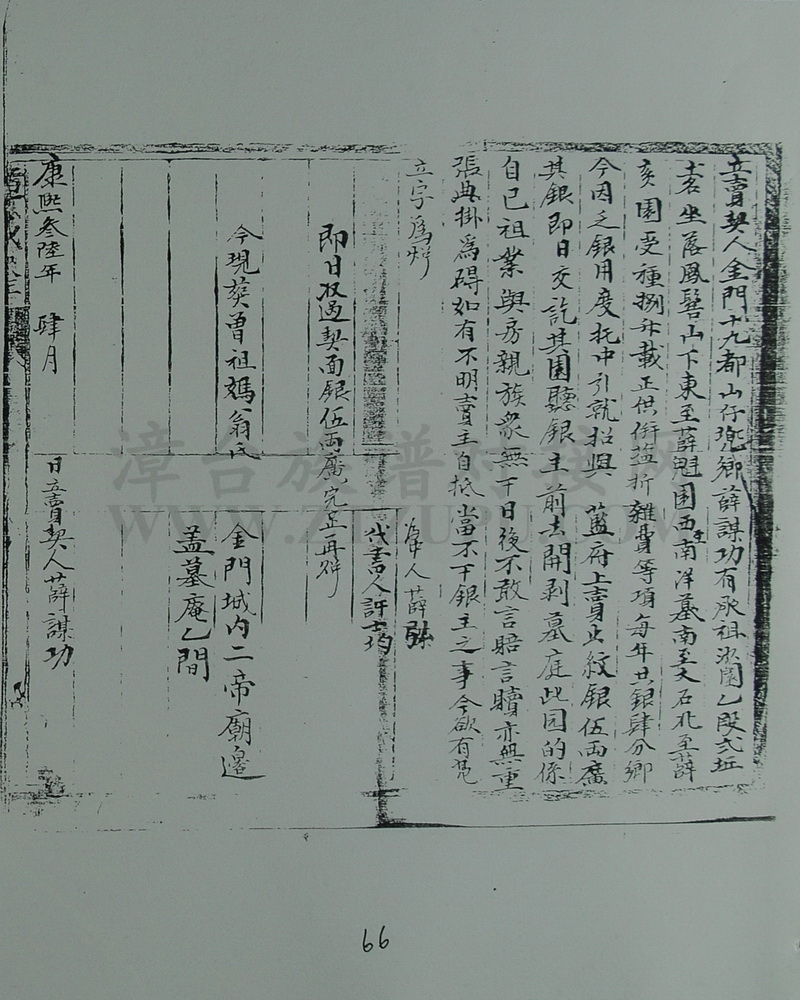 立賣契人金門十九都山仔兜鄉薛謀功有承祖園乙段弍坵
坐落風髻山下東至薛魁園西至南洋墓南至大石北至薛
亥園受種捌升載正供餉鹽折雜費等項每年共銀肆分鄉
今因乏銀用度托中引就招與藍府上賣出紋銀伍兩廣
其銀即日交訖其園聽銀主前去開剥墓庭此园的係
自已祖業與房親族衆無干日後不敢言賠言贖亦無重
張典掛為碍如有不明賣主自抵當不干銀主之事今欲有憑
立字為炤
為中人薛
代書人許士均
即日收過契面銀伍兩廣完正再炤
今現葬曾祖媽翁氏
金門城内二帝廟邊
盖墓庵乙間
康熙叁陸年 肆月 日立賣契人薛謀功
漳台族谱对接网
66